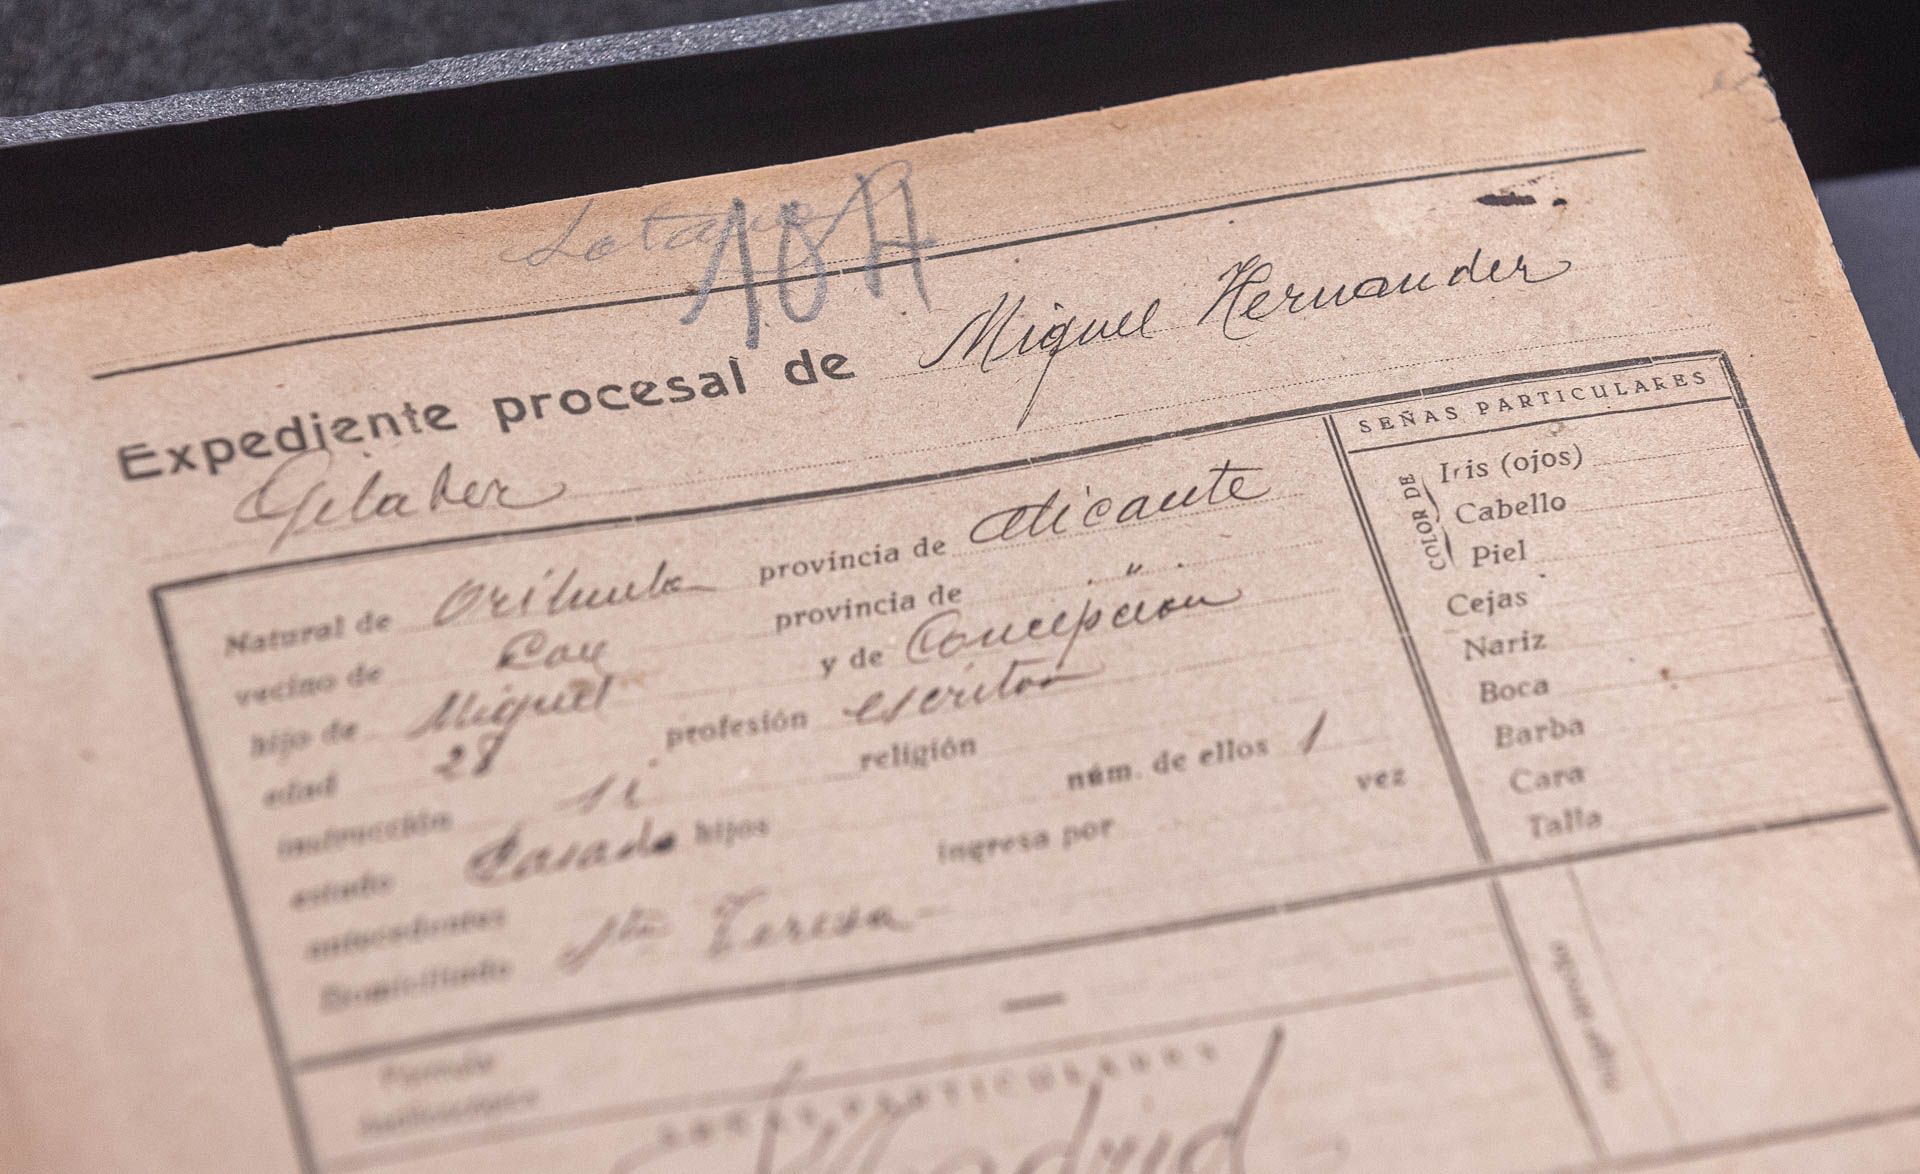 Expediente procesal de Miguel Hernander
Gilaber
Natural de Orihuela provincia de Alicante
vecino de Cox provincia de "
hijo de Miguel y de Concepción
edad 28 profesión escritor
instrucción si religión
estado Casado hijos núm. de ellos 1
antecedentes ingresa por vez
Domiciliado Sta Teresa
SEÑAS PARTICULARES
COLOR DE
Iris (ojos)
Cabello
Piel
Cejas
Nariz
Boca
Barba
Cara
Talla
SEÑAS PARTICULARES
Madrid